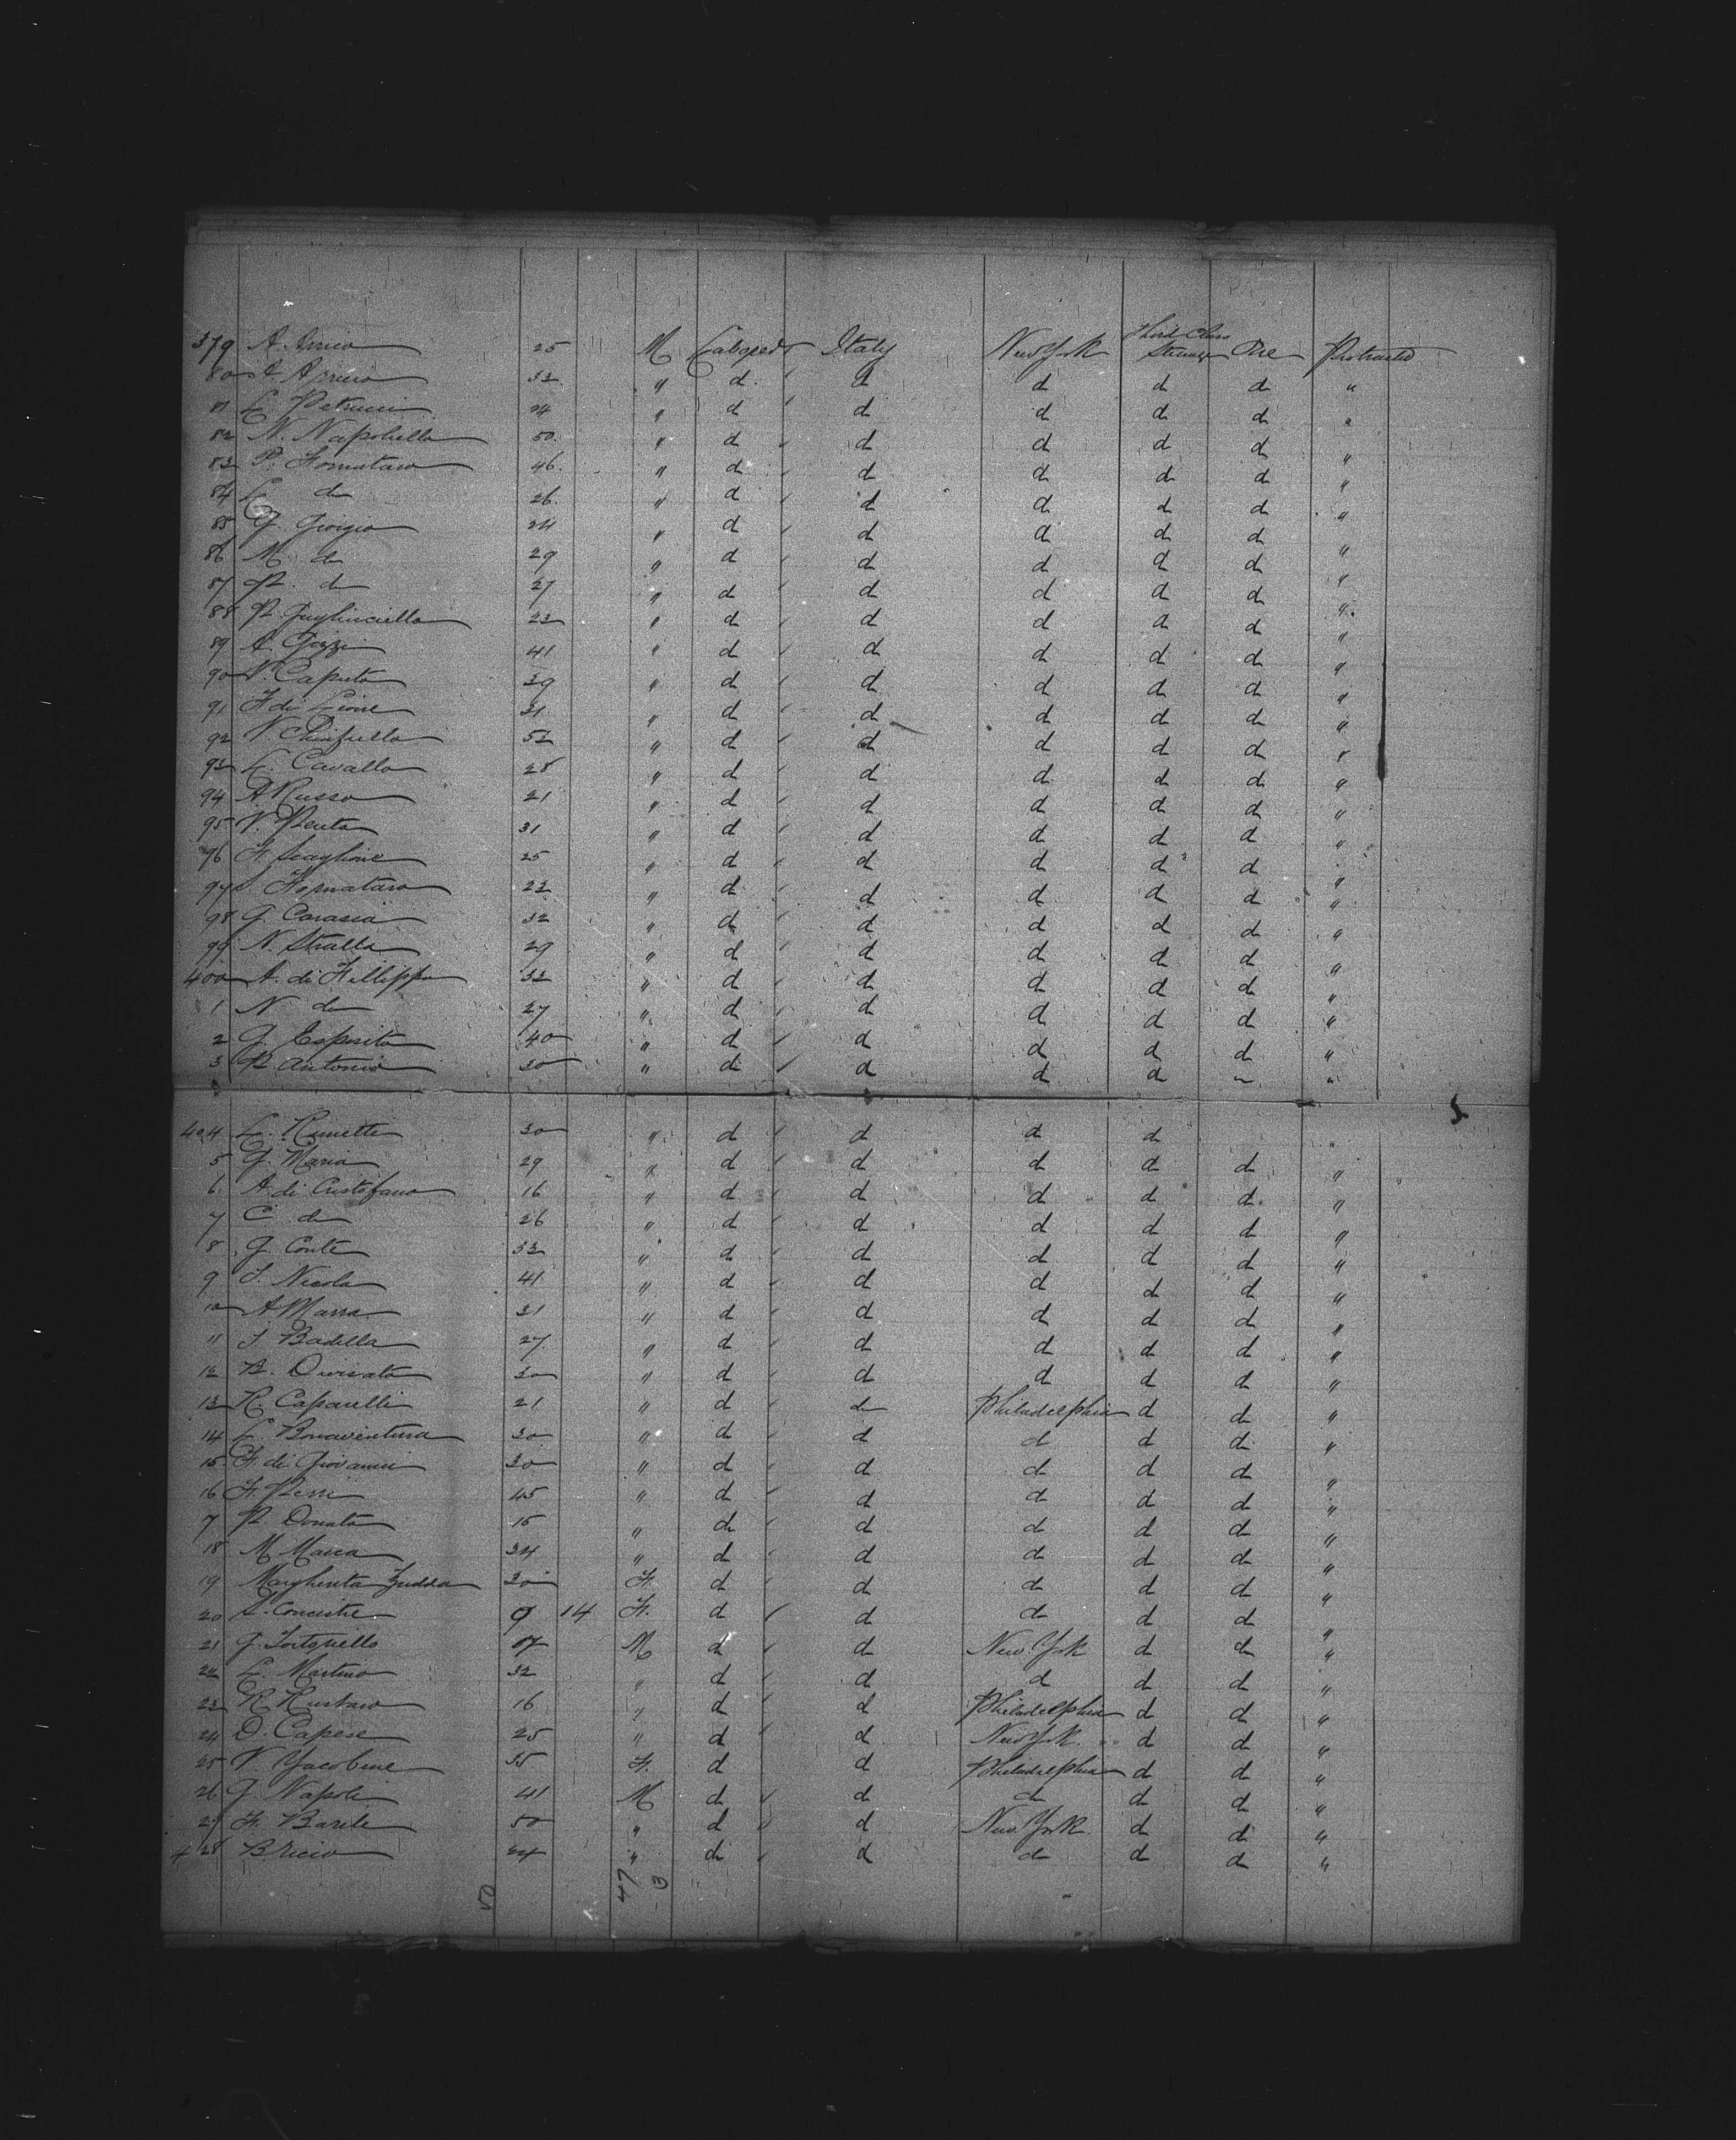 379 A. Errico 25 M Laborer Italy New York Third Class Steerage One Protracted
80 A. Arrico 32 " d d d d d "
81 L. Petrucci 24 " d d d d d "
82 N. Napoliello 50 " d d d d d "
83 P. Fornataro 46 " d d d d d "
84 L. d 26 " d d d d d "
85 G. Giorgio 24 " d d d d d "
86 M. d 29 " d d d d d "
87 P. d 27 " d d d d d "
88 P. 23 " d d d d d "
89 A. Gizzi 41 " d d d d d "
90 V. Caputo 39 " d d d d d "
91 F. di Lione 31 " d d d d d "
92 N. 52 " d d d d d "
93 L. Cavallo 28 " d d d d d "
94 A. Russo 21 " d d d d d "
95 V. Penta 31 " d d d d d "
96 F. Scaglione 25 " d d d d d "
97 S. Fornataro 23 " d d d d d "
98 G. Carasia 32 " d d d d d "
99 N. Stralla 29 " d d d d d "
400 A. di Fillippo 32 " d d d d d "
1 N. d 27 " d d d d d "
2 G. Esposito 40 " d d d d d "
3 P. Antonio 30 " d d d d "
5
404 L. 30 " d d d d "
5 G. Maria 29 " d d d d d "
6 A. di Cristofano 16 " d d d d d "
7 C. d 26 " d d d d d "
8 G. Conte 32 " d d d d d "
9 S. Nicola 41 " d d d d d "
10 A. Marra 31 " d d d d d "
11 S. Badella 27 " d d d d d "
12 B. 30 " d d d d d "
13 R. Caparelli 21 " d d Philadelphia d d "
14 L. Bonaventura 30 " d d d d d "
15 F. di Giovanni 30 " d d d d d "
16 F. Perri 45 " d d d d d "
7 P. Donato 15 " d d d d d "
18 M. Marca 34 " d d d d d "
19 Margherita Zudda 30 F. d d d d d "
20 9 14 F. d d d d d "
21 G. Tortoriello 17 M d d New York d d "
22 L. Martino 32 " d d d d d "
23 R. 16 " d d Philadelphia d d "
24 D. Capese 25 " d d New York d d "
25 V. Yacobine 35 F. d d Philadelphia d d "
26 G. Napoli 41 M d d d d d "
27 F. Barile 50 " d d New York d d "
428 Bricio 24 " d d d d d "
50 47 3